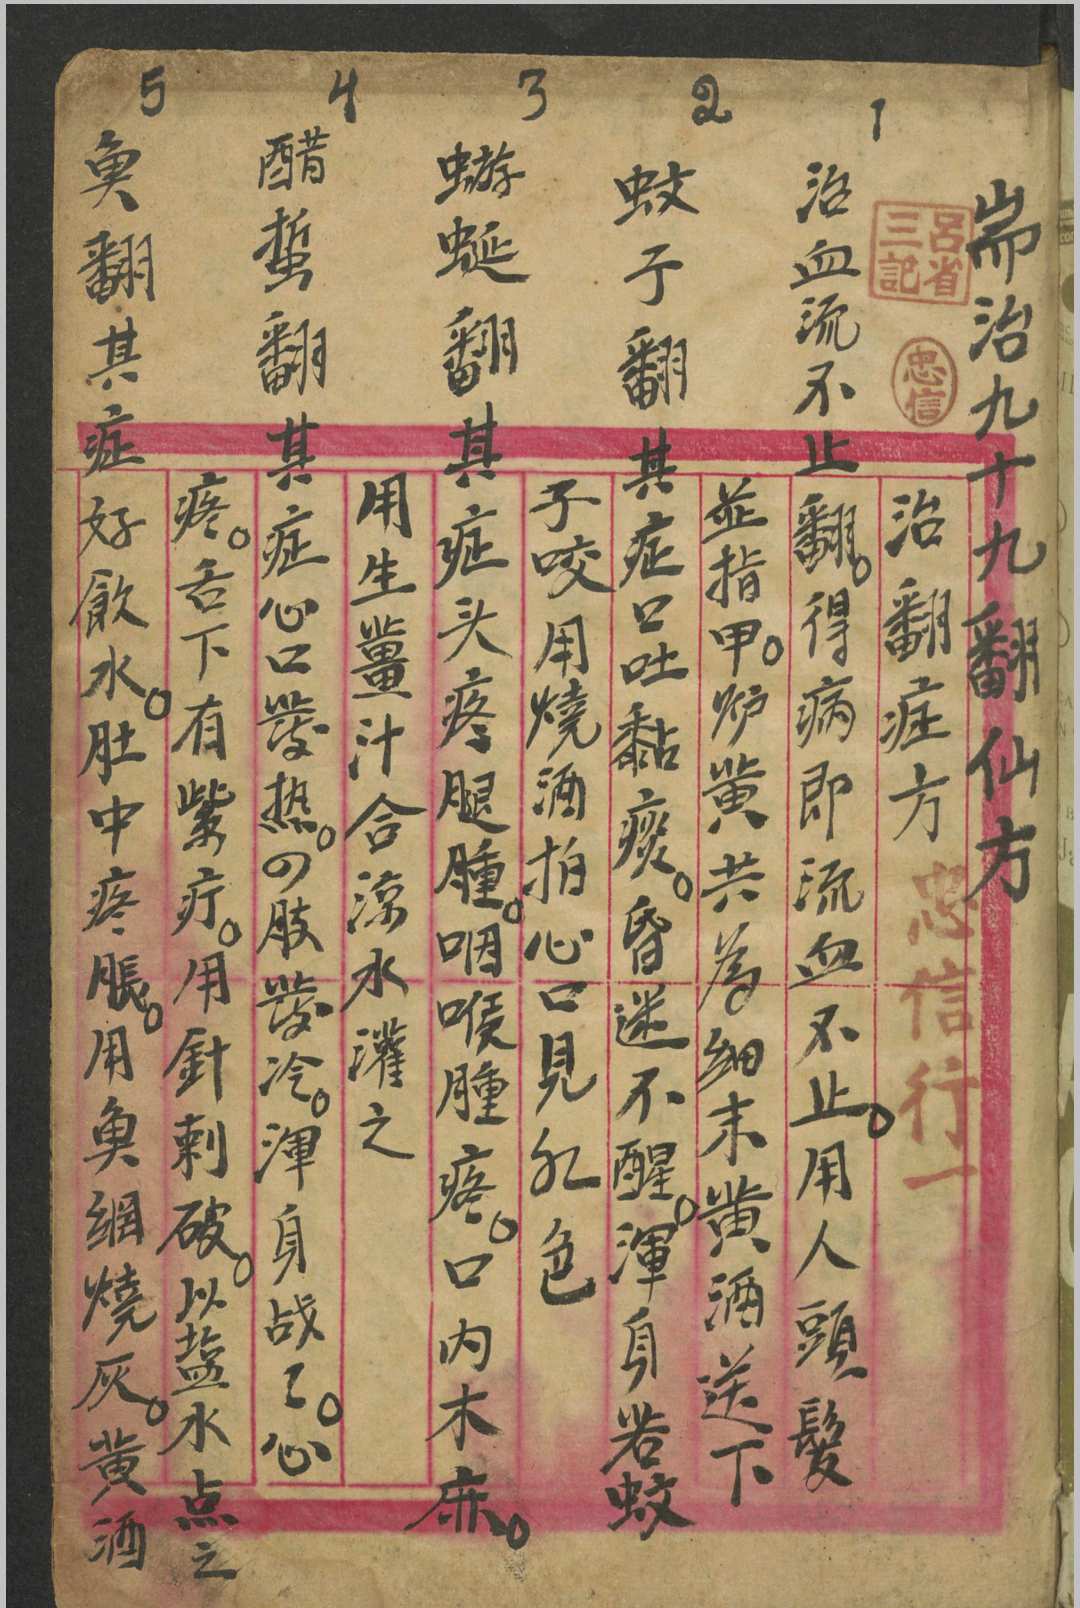 耑治九十九翻仙方
呂省三記
忠信
治翻症方
忠信行一
1
治血流不止翻。得病即流血不止。用人頭髮
並指甲。炉黄共為细末黄酒送下
2
蚊子翻其症口吐黏痰。昏迷不醒。渾身若蚊
子咬用燒酒拍心口見紅色
3
蝣蜒翻其症头疼腿腫。咽喉腫疼。口内木麻。
用生薑汁合涼水灌之
4
醋蜇翻其症心口發热。四肢發冷。渾身战了。心
疼。舌下有紫疔。用針刺破。以盐水点之
5
魚翻其症好飲水。肚中疼脹。用魚網燒灰。黄酒